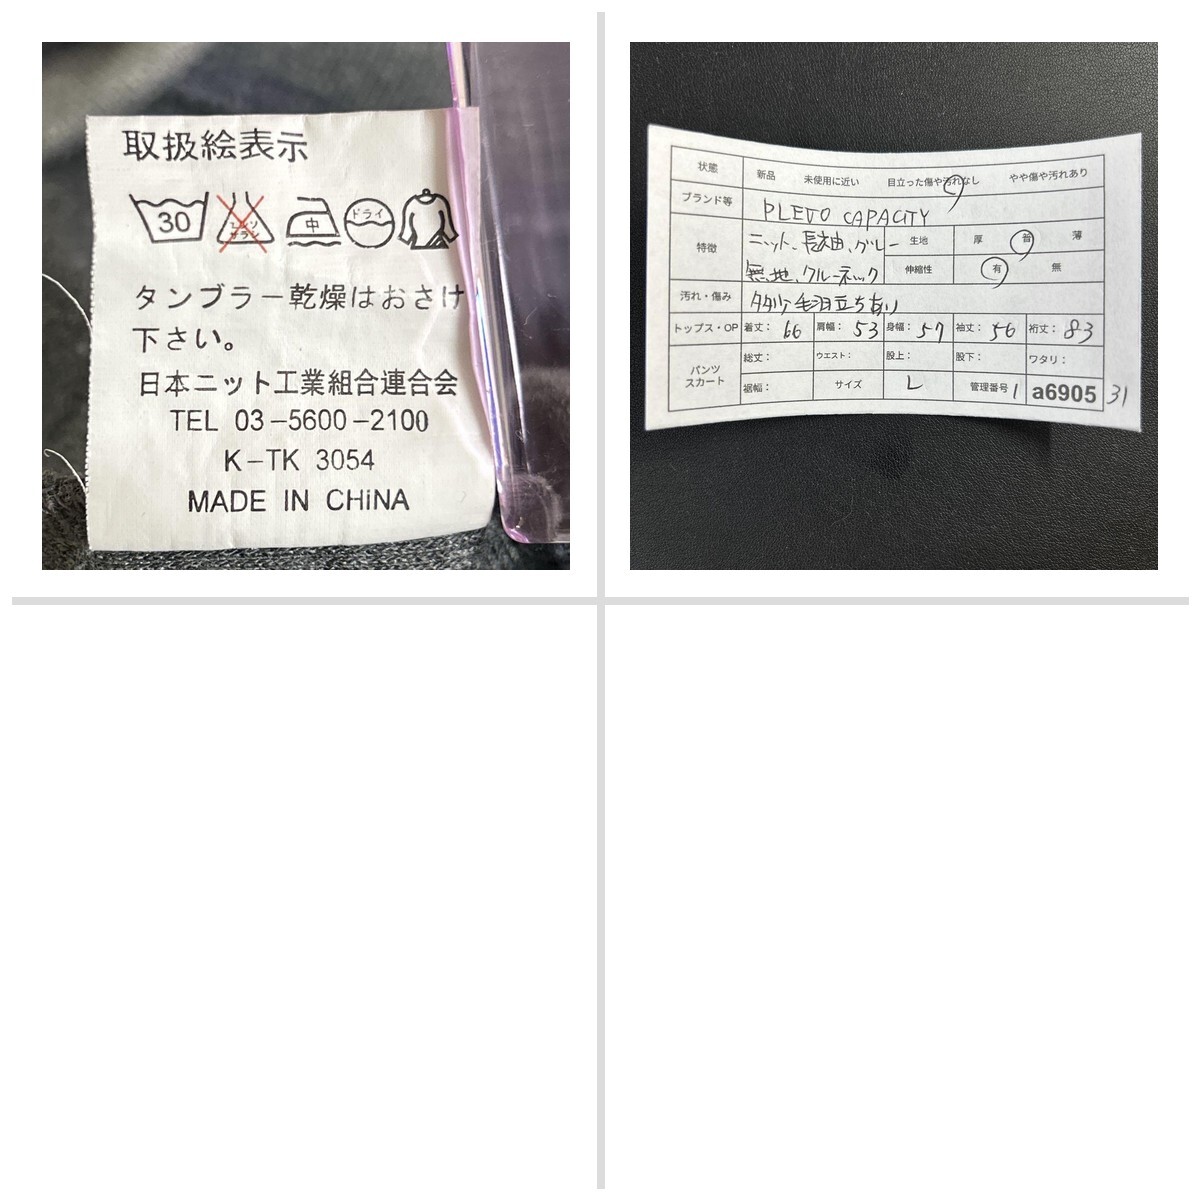 取扱絵表示
30 エンソサラシ 中 ドライ
タンブラー乾燥はおさけ
下さい。
日本ニット工業組合連合会
TEL 03-5600-2100
K-TK 3054
MADE IN CHiNA
状態 新品 未使用に近い 目立った傷や汚れなし やや傷や汚れあり
ブランド等 PLEVO CAPACITY
特徴 ニット、長袖、グレー 生地 厚 普 薄
無地、クルーネック 伸縮性 有 無
汚れ・傷み 毛羽立ちあり
トップス・OP 着丈: 66 肩幅: 53 身幅: 57 袖丈: 56 裄丈: 83
パンツ スカート 総丈: ウエスト: 股上: 股下: ワタリ:
裾幅: サイズ L 管理番号 1 a6905 31